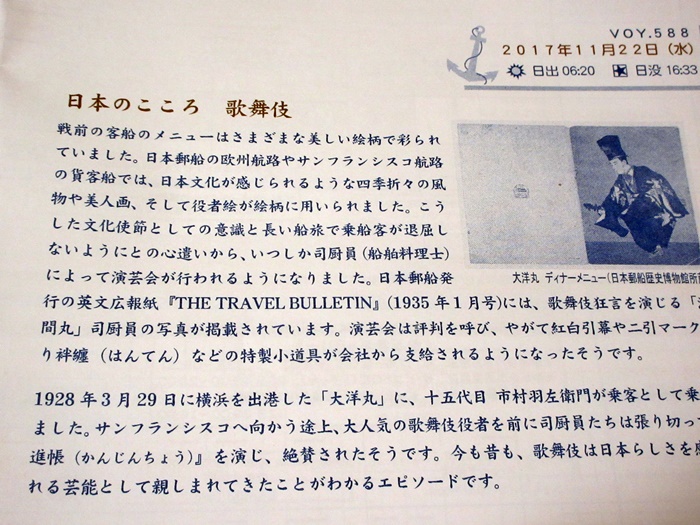 VOY.588
2017年11月22日(水)
日出 06:20 日没 16:33
日本のこころ 歌舞伎
戦前の客船のメニューはさまざまな美しい絵柄で彩られ
ていました。日本郵船の欧州航路やサンフランシスコ航路
の貨客船では、日本文化が感じられるような四季折々の風
物や美人画、そして役者絵が絵柄に用いられました。こう
した文化使節としての意識と長い船旅で乗船客が退屈し
ないようにとの心遣いから、いつしか司厨員(船舶料理士)
によって演芸会が行われるようになりました。日本郵船発
行の英文広報紙『THE TRAVEL BULLETIN』(1935年1月号)には、歌舞伎狂言を演じる「
間丸」司厨員の写真が掲載されています。演芸会は評判を呼び、やがて紅白引幕や二引マーク
り袢纏(はんてん)などの特製小道具が会社から支給されるようになったそうです。
大洋丸 ディナーメニュー(日本郵船歴史博物館所
1928年3月29日に横浜を出港した「大洋丸」に、十五代目 市村羽左衛門が乗客として乗
ました。サンフランシスコへ向かう途上、大人気の歌舞伎役者を前に司厨員たちは張り切っ
進帳(かんじんちょう)』を演じ、絶賛されたそうです。今も昔も、歌舞伎は日本らしさを
れる芸能として親しまれてきたことがわかるエピソードです。